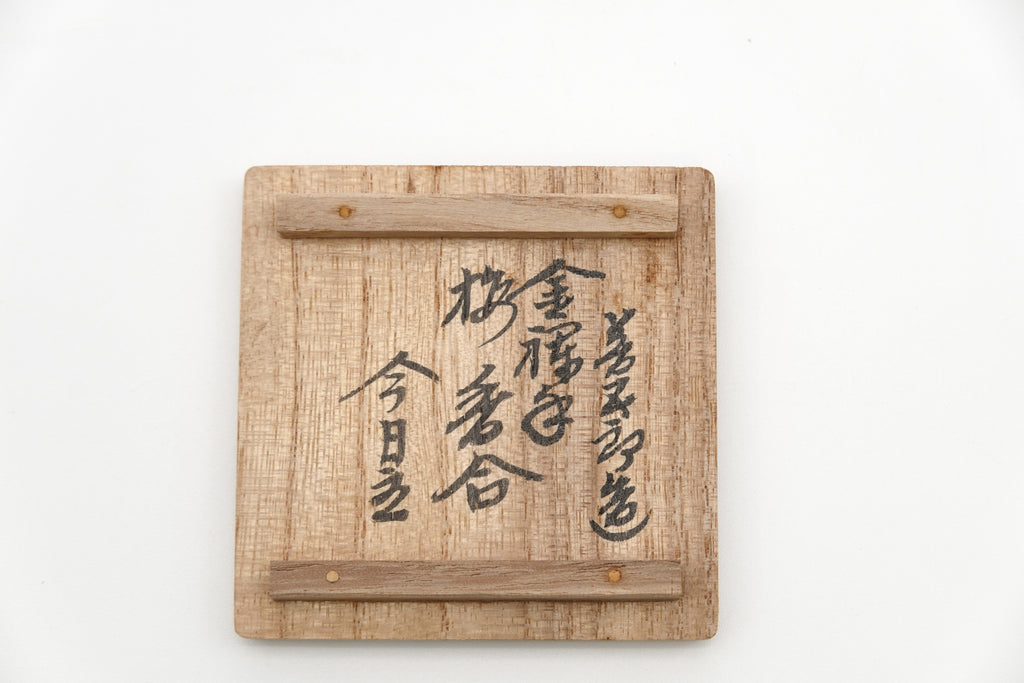 善五郎造
金襴手
桜
香合
今日立